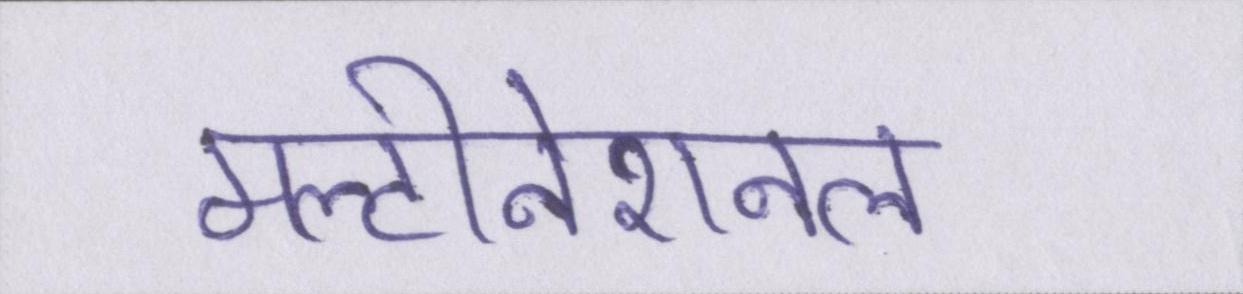 मल्टीनेशनल